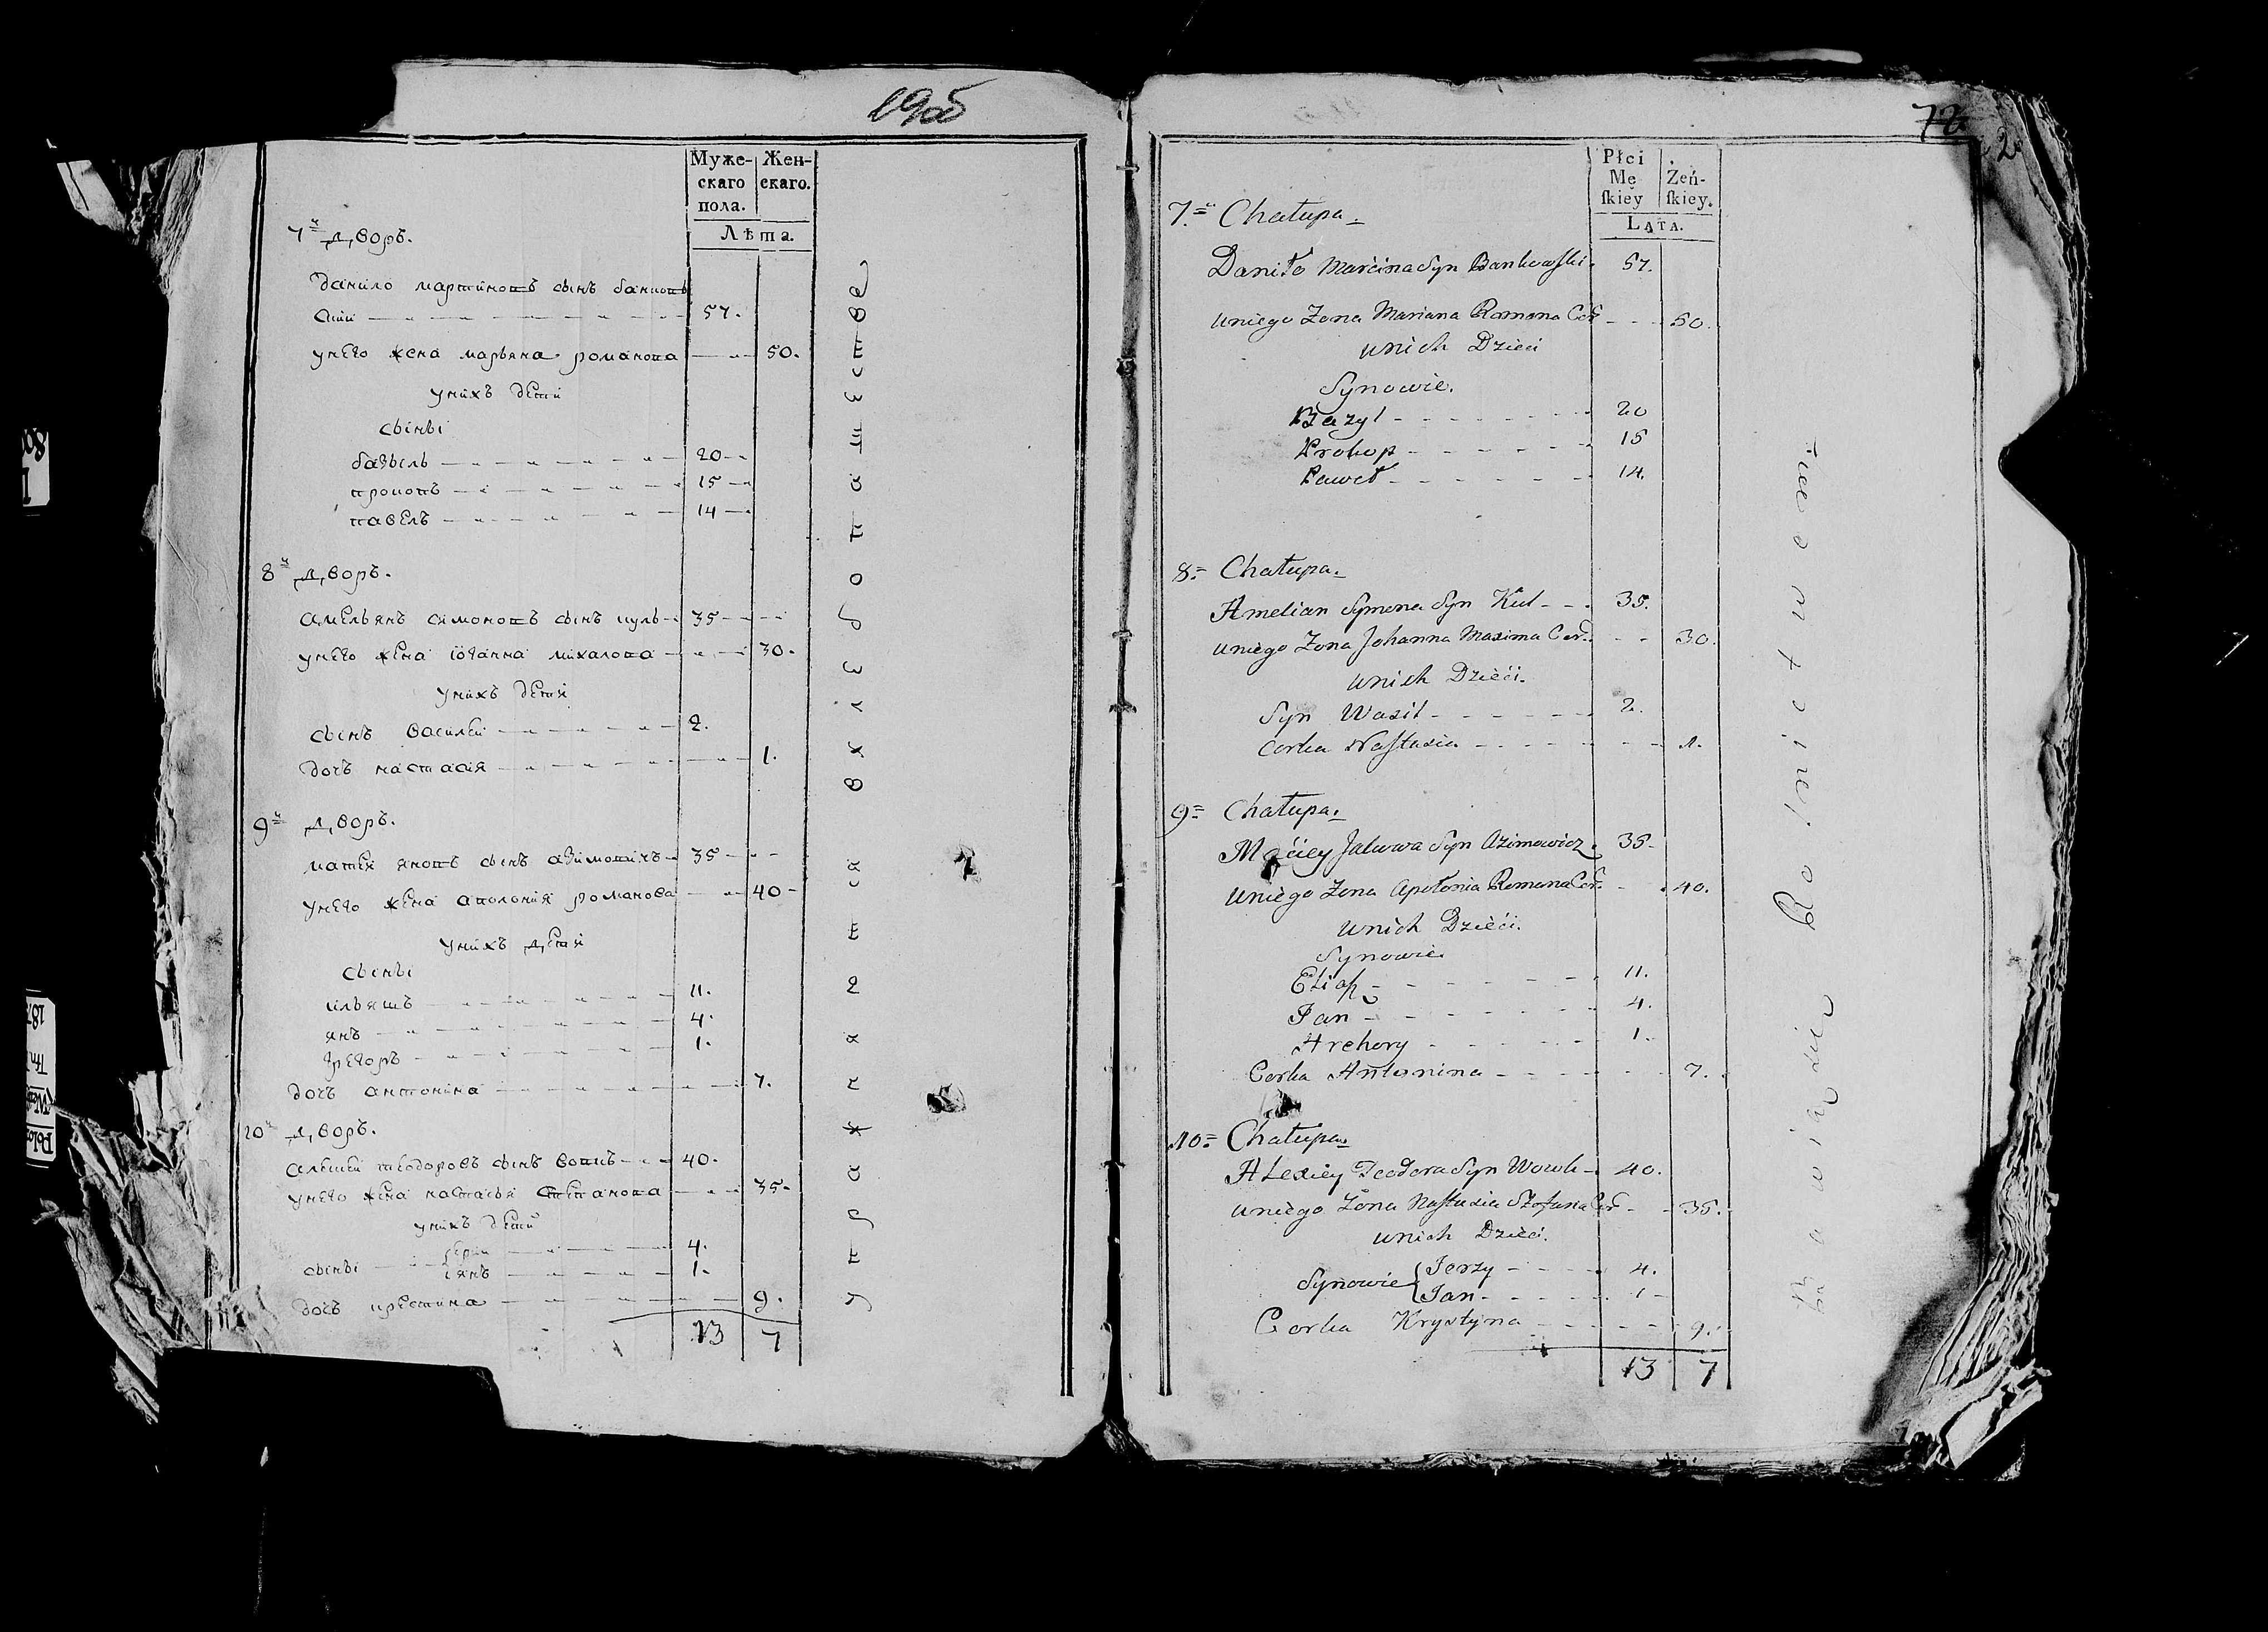 19об
Муже-
скаго
пола.
Жен-
скаго.
Лѣта.
7й дворъ.
данило мартиновъ сынъ банков
скии 57.
унего жена марьяна романова 50.
унихъ дети
сыны
базыль 20
прокопъ 15
павелъ 14
8й дворъ.
амельянъ симоновъ сынъ куль 35
унего жена iоганна михалова 30.
унихъ дети
сынъ василеи 2.
дочь настасiя 1.
9й дворъ.
матеи яновъ сынъ азимовичъ 35
унего жена аполонiя романова 40
унихъ дети
сыны
ильяшъ 11.
янъ 4.
грегоръ 1.
дочь антонина 7.
10й дворъ.
алексеи теодоровъ сынъ вовкъ 40.
унего жена настасья степанова 35
унихъ дети
сыны 4.
янъ 1.
дочь крестина 9.
13 7
72
2
Płci
Mę
ſkiey
Żeń-
ſkiey.
LATA.
7. Chałupa.
Daniło Marcina Syn Bankowski 57.
uniego Zona Mariana Romana Cor 50.
unich Dzieci
Synowie.
Bazyl 20
Prokop 15
Paweł 14.
8. Chałupa.
Amelian Symona Syn Kul 35.
uniego Zona Johanna Maxima Cor. 30.
unich Dzieci.
Syn Wasil 2.
Corka Nastasia 1.
9 Chałupa.
Maciey Jakuwa Syn Azimowicz 35
uniego Zona Apołonia Romana Cor. 40.
unich Dzieci.
Synowie
Eliasz 11.
Jan 4.
Hrehory 1.
Corka Antonina 7.
10 Chałupa
Alexiey Teodora Syn Wowk 40.
uniego Zona Nastasia Stefana Cor 35.
unich Dzieci.
Synowie Jerzy 4.
Jan 1
Corka Krystyna 9.
13 7